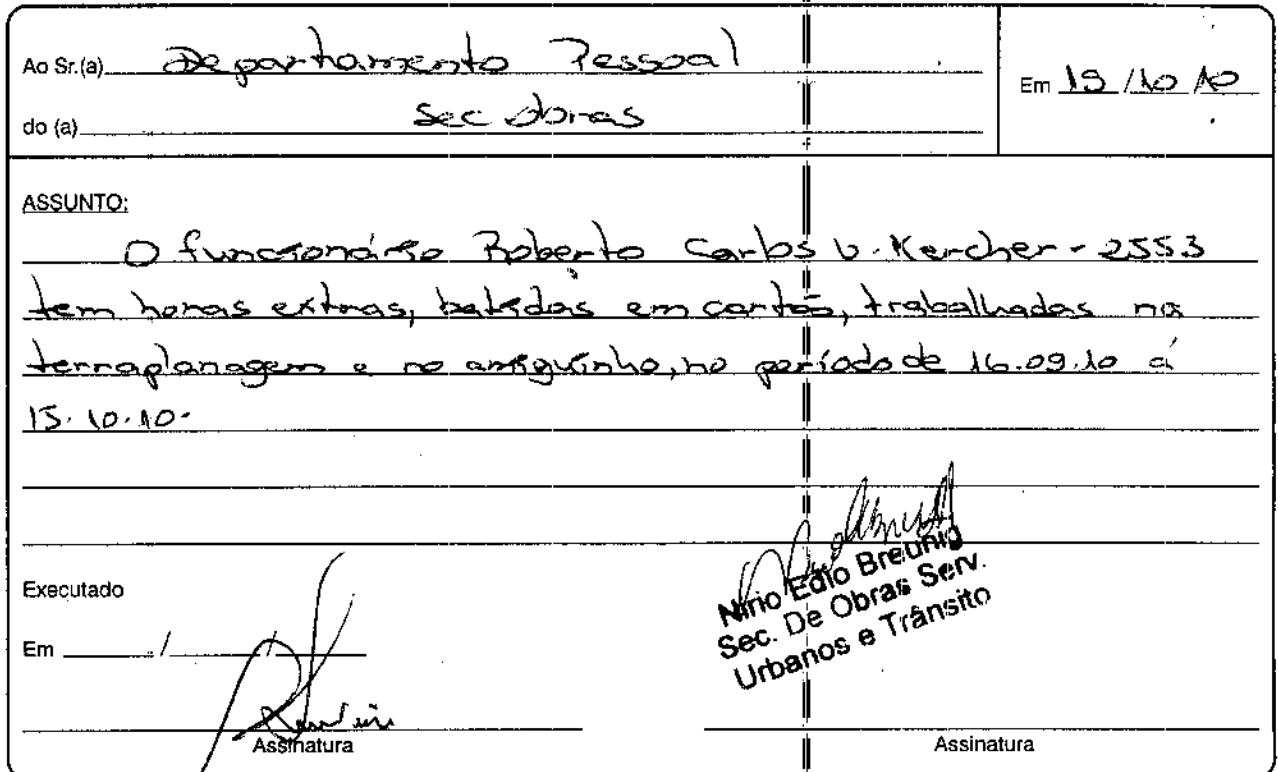 Ao Sr.(a) Departamento Pessoal
do (a) Sec Obras
Em 19/10/10
ASSUNTO:
O funcionário Roberto Carlos V. Kercher - 2553
tem horas extras, batidas em cartão, trabalhadas na
terraplanagem e no amiguinho, no período de 16.09.10 á
15.10.10.
Executado
Em / /
Assinatura
Nírio Edio Breunig
Sec. De Obras Serv.
Urbanos e Trânsito
Assinatura